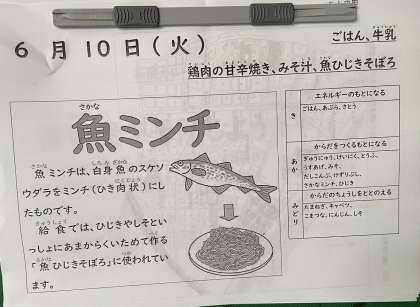 6月10日(火)
ごはん、牛乳
鶏肉の甘辛焼き、みそ汁、魚ひじきそぼろ
さかな
魚ミンチ
魚ミンチは、白身魚のスケソ
ウダラをミンチ(ひき肉状)にし
たものです。
給食では、ひじきやしそとい
っしょにあまからくいためて作る
「魚ひじきそぼろ」に使われてい
ます。
エネルギーのもとになる
き
ごはん、あぶら、さとう
からだをつくるもとになる
あか
ぎゅうにゅう、けいにく、とうふ、
うすあげ、みそ、
だしこんぶ、けずりぶし、
さかなミンチ、ひじき
からだのちょうしをととのえる
みどり
たまねぎ、キャベツ、
こまつな、にんじん、しそ